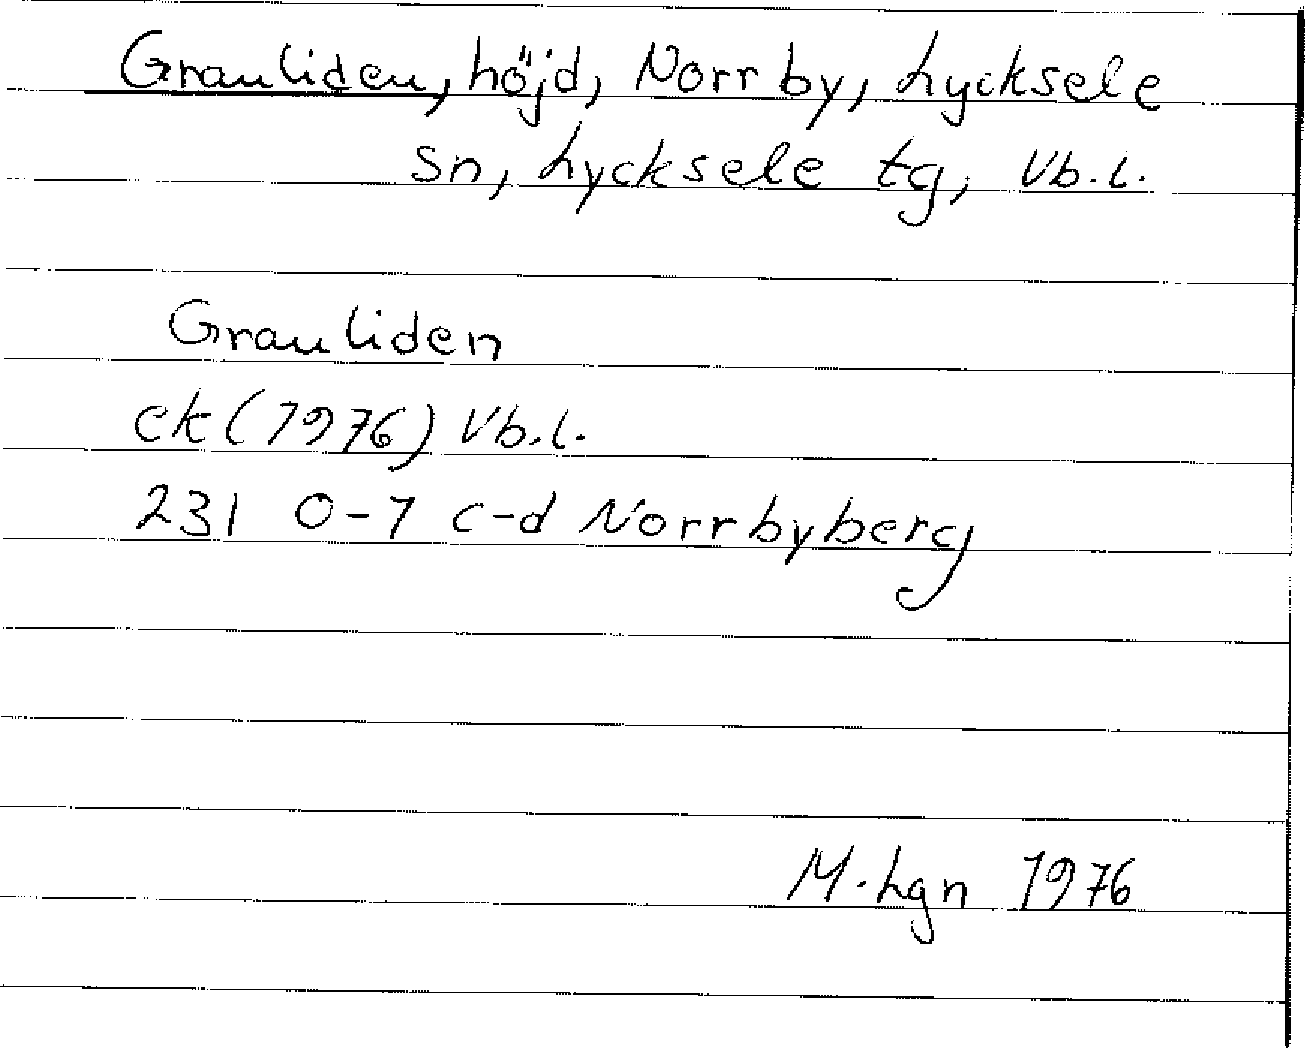 Grauliden, höjd, Norrby, Lycksele
sn, Lycksele tg, Vb.l.
Grauliden
ek (1976) Vb.l.
231 0-1 c-d Norrbyberg
M. Lgn 1976